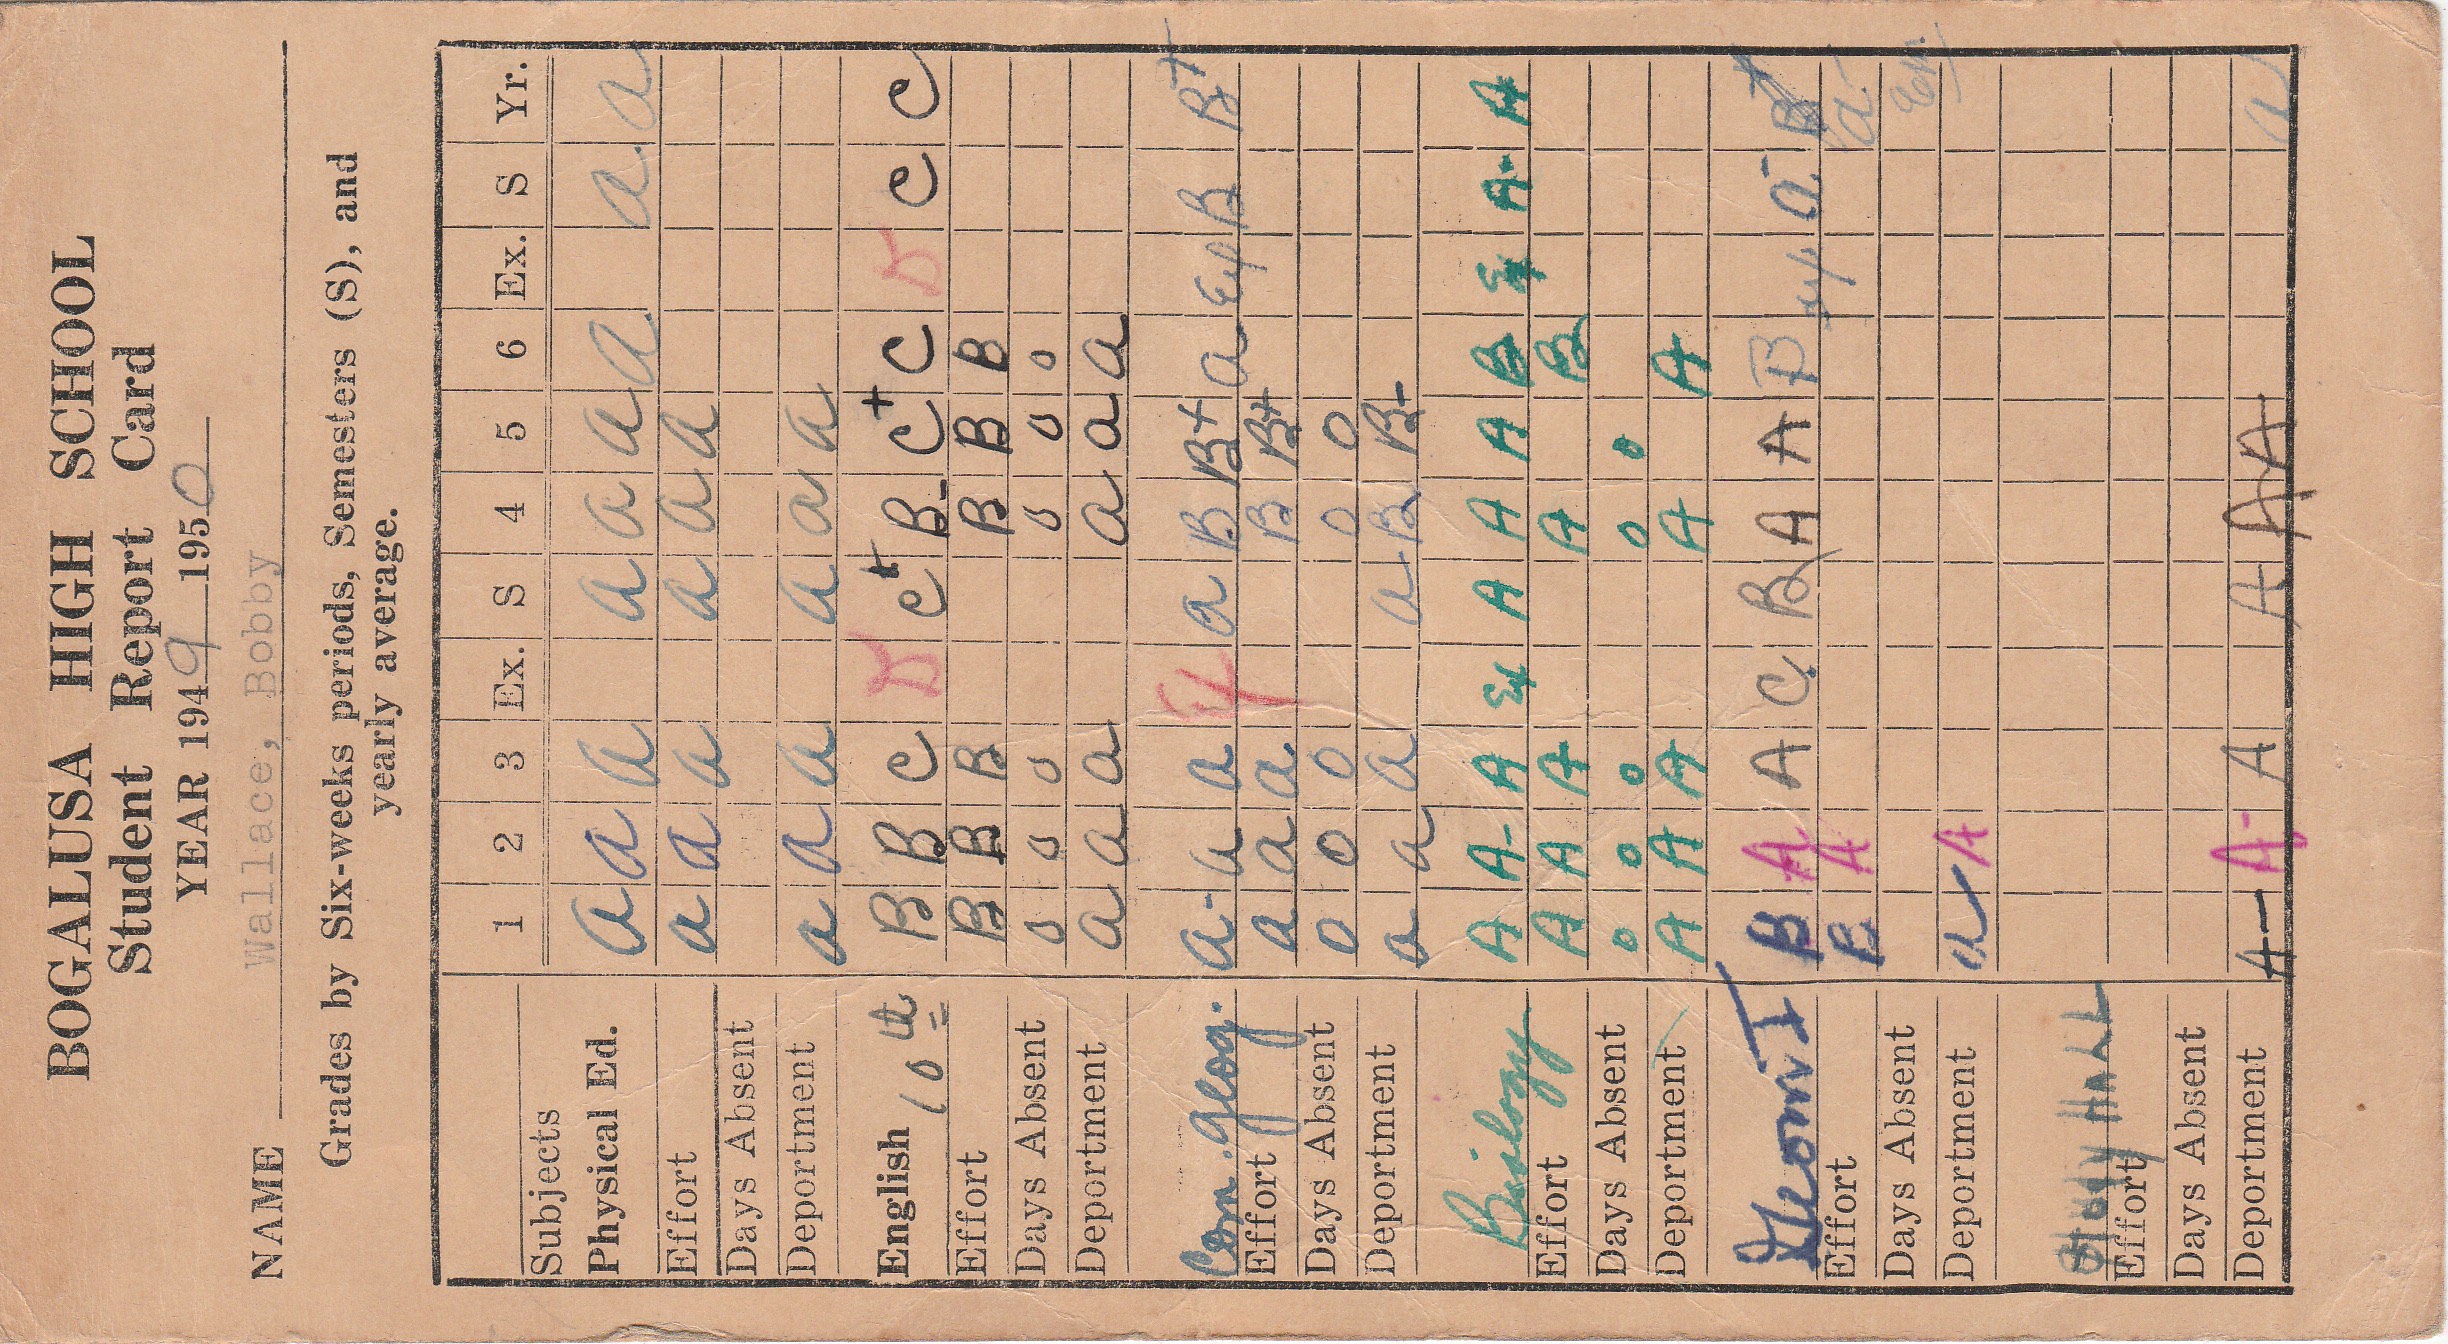 BOGALUSA HIGH SCHOOL
Student Report Card
YEAR 1949 1950
NAME Wallace, Bobby
Grades by Six-weeks periods, Semesters (S), and
yearly average.
1 2 3 Ex. S 4 5 6 Ex. S Yr.
Subjects
Physical Ed. a a a a a a a a a
Effort a a a a a a
Days Absent
Deportment a a a a a a
English 10th B B C D C+ B- C+ C D C C
Effort B B B B B B
Days Absent 0 0 0 0 0 0
Deportment a a a a a a
Com. Geog. a- a a Ex a B B+ a Exp B B+
Effort a a a B B+
Days Absent 0 0 0 0 0
Deportment a a a a B B-
Biology A A- A Ex A A A B Ex A- A
Effort A A A A B
Days Absent 0 0 0 0 0
Deportment A A A A A
Geom I B A A C B A A B exp a- B+
Effort B A a-
Days Absent
Deportment a A
Study HALL
Effort
Days Absent
Deportment A- A- A A A A a